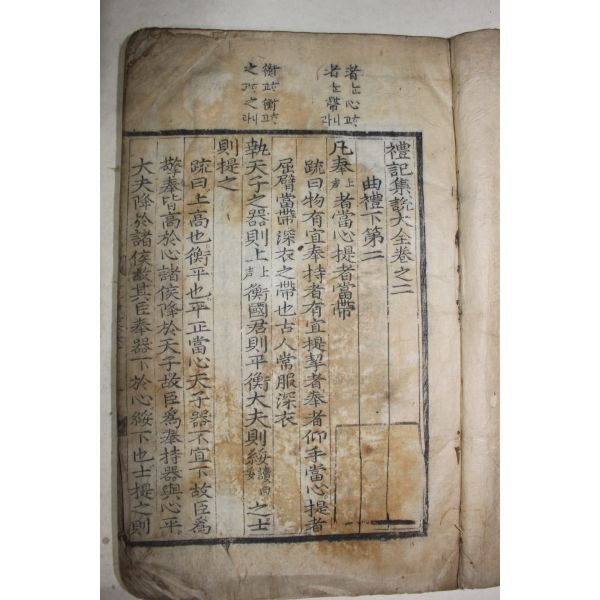 者는心애
者는帶니라
衡애衡애
之애之라
禮記集說大全卷之二
曲禮下第二
凡奉上聲者當心提者當帶
疏曰物有宜奉持者有宜提挈者奉者仰手當心提者
屈臂當帶深衣之帶也古人常服深衣
執天子之器則上上聲衡國君則平衡大夫則綏讀曰妥之士
則提之
疏曰上高也衡平也平正當心天子器不宜下故臣爲
擎奉皆高於心諸侯降於天子故臣爲奉持器與心平
大夫降於諸侯故其臣奉器下於心綏下也士提之則